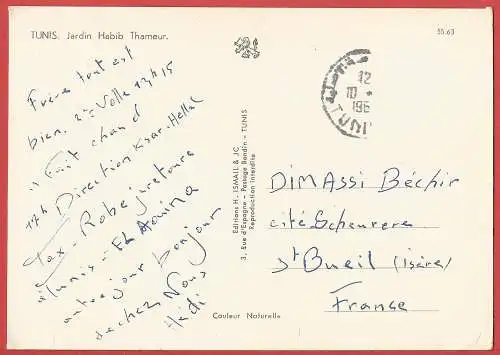 TUNIS. Jardin Habib Thameur.
55.63
Frère tout est
bien. 2è Volle 13h15
" Fait chaud
17h Direction Ksar-Hellal
Taxi - Robe je retoure
à Tunis - El Aouina
autre jour bonjour
de chez Nous
Hédi
Editions H. ISMAIL & JC
3, Rue d'Espagne - Passage Bondin - TUNIS
Reproduction Interdite
12
10 *
196
TUNI
DIMASSI Béchir
cité Scheurere
St Bueil (isère)
France
Couleur Naturelle